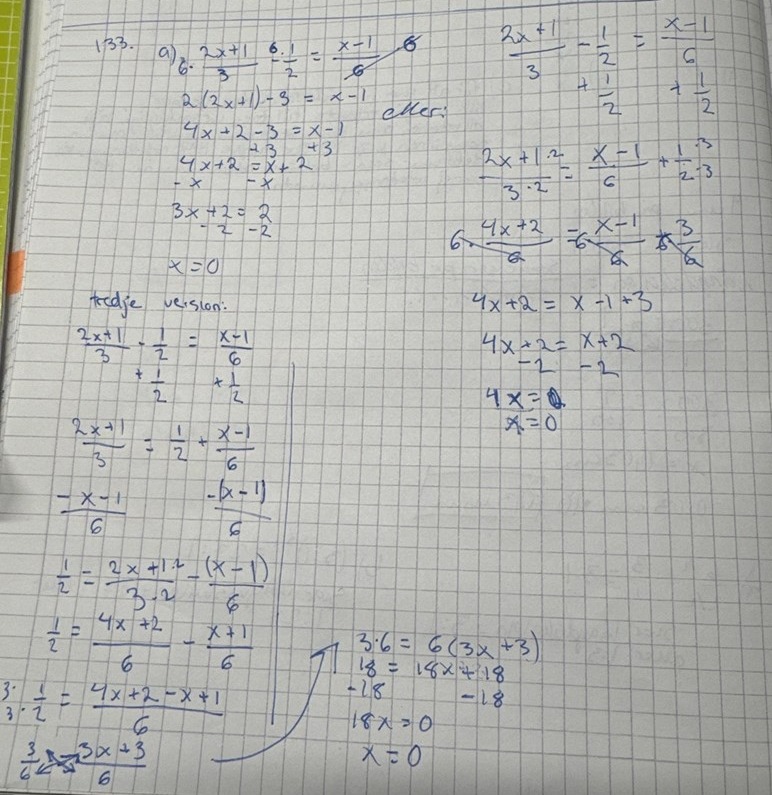 133. a) 6· (2x+1)/3 - 6·1/2 = (x-1)/6 ·6
2(2x+1)-3 = x-1
4x+2-3 = x-1
+3 +3
4x+2 = x+2
-x -x
3x+2 = 2
-2 -2
x=0
eller:
(2x+1)/3 - 1/2 = (x-1)/6
+1/2 +1/2
(2x+1·2)/(3·2) = (x-1)/6 + (1·3)/(2·3)
6· (4x+2)/6 = 6 (x-1)/6 + 3/6
4x+2 = x-1+3
4x+2 = x+2
-2 -2
4x=0
x=0
tredje version:
(2x+1)/3 - 1/2 = (x-1)/6
+1/2 +1/2
(2x+1)/3 = 1/2 + (x-1)/6
(-x-1)/6 -(x-1)/6
1/2 = (2x+1·2)/(3·2) - (x-1)/6
1/2 = (4x+2)/6 - (x+1)/6
3·/3· 1/2 = (4x+2-x+1)/6
3/6 = (3x+3)/6
3·6 = 6(3x+3)
18 = 18x+18
-18 -18
18x=0
x=0